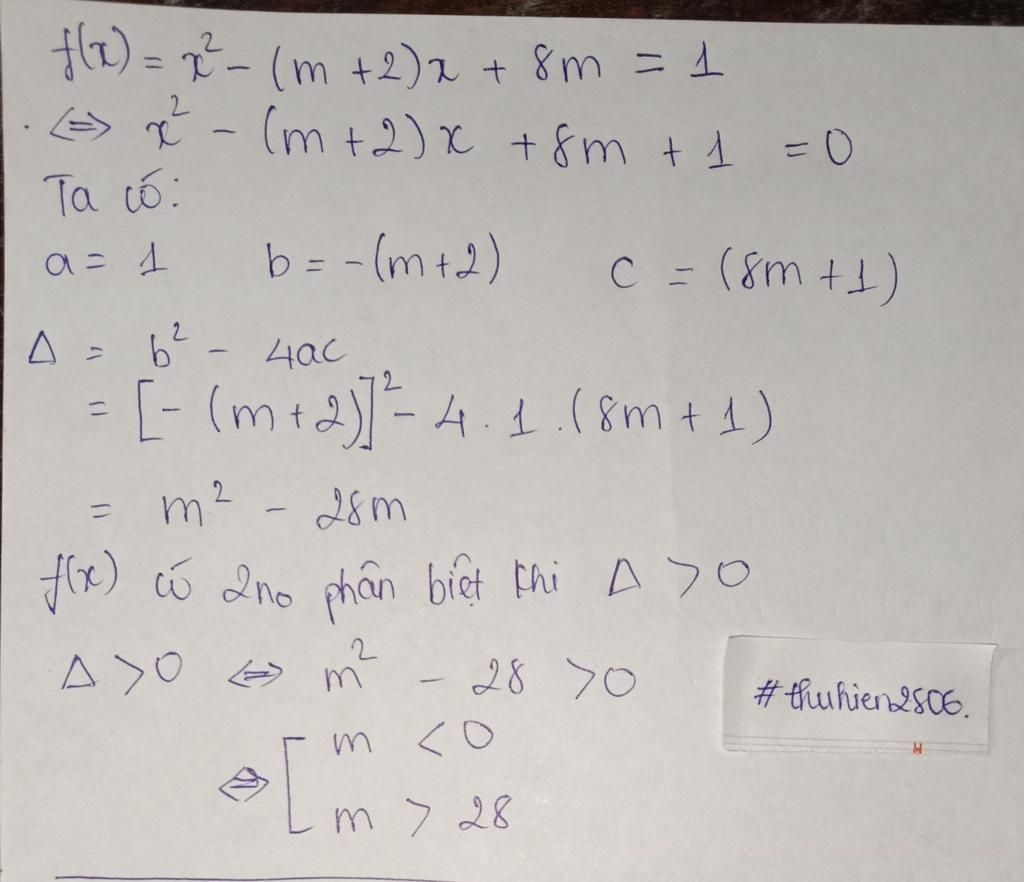 f(x) = x² - (m + 2)x + 8m = 1
<=> x² - (m + 2)x + 8m + 1 = 0
Ta có:
a = 1 b = -(m+2) c = (8m + 1)
Δ = b² - 4ac
= [- (m + 2)]² - 4 . 1 . (8m + 1)
= m² - 28m
f(x) có 2no phân biệt khi Δ > 0
Δ > 0 <=> m² - 28 > 0
#thuhien2806.
<=> [ m < 0
m > 28